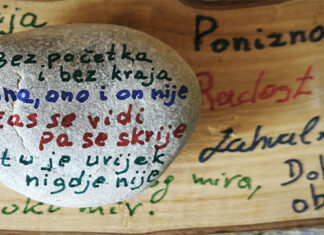 ija
Bez početka
i bez kraja
na, ono i on nije
čas se vidi
pa se skrije
tu je uvijek
nigdje nije
Ponizno
Radost
Zahval
g mira,
oki mir.
Do
ob